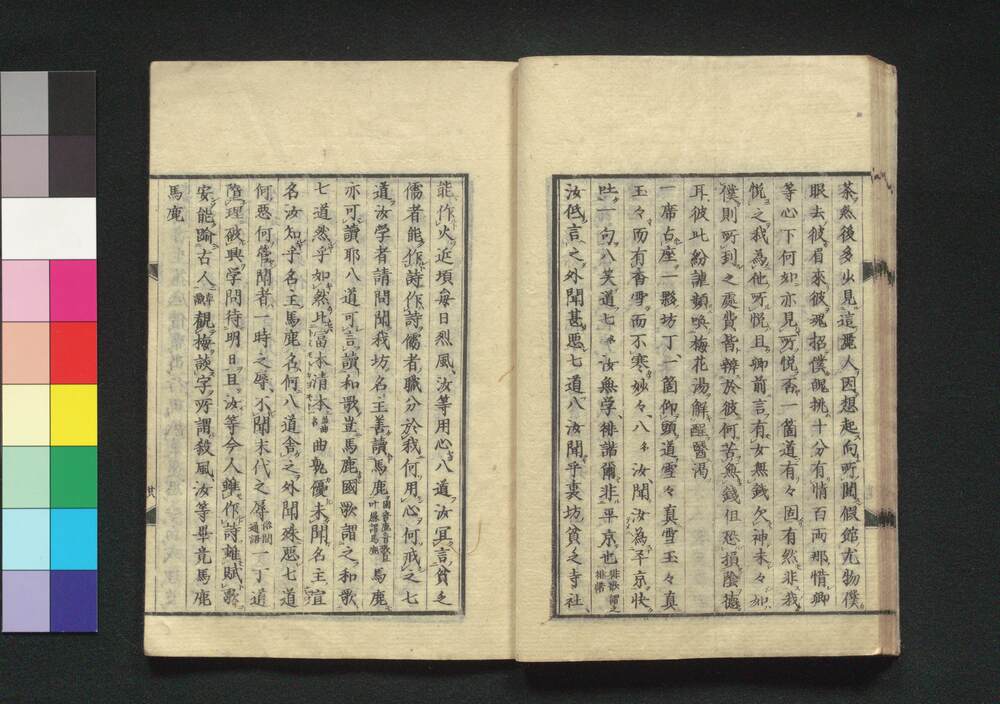 茶、然後多少見這麗人因想起向所聞假館尤物僕
眼去彼眉來彼魂招僕魄挑十分有情百両那惜卿
等心下何如亦見所悦否一箇道有々固有然非我
悦之我為他所悦且卿前言有女無銭欠神未々如
僕則所到之處費皆辨於彼何苦無錢但恐損陰徳
耳彼此紛譁頻喚梅花湯解酲醫渇
一席占座一夥坊丁一箇仰頭道雪々真雪玉々真
玉々而有香雪而不寒妙々八々汝聞汝為平京快
吐一句八笑道七々汝無学俳諧爾非平京也 俳歌謂之俳諧
汝低言之外聞甚悪七道八汝聞乎裏坊貧乏寺社
能作火近頃毎日烈風汝等用心八道汝冝言貧乏
儒者能作詩作詩儒者職分於我何用心何戒之七
道汝学者請問聞我坊名主善讀馬鹿 馬鹿
亦可讀耶八道可言讀和歌豈馬鹿國歌謂之和歌
七道然乎如然此富本清本 曲孰優未聞名主喧
名汝知乎名主馬鹿名何八道舎之外聞殊悪七道
何悪何管聞者一時之辱不聞末代之辱 俗間通語 一丁道
陰理破興学問待明日且汝等今人雖作詩雖賦歌
安能踰古人 觀梅談字所謂殺風汝等畢竟馬鹿
馬鹿